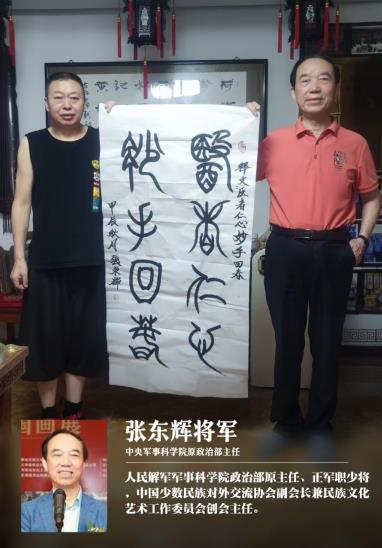 释文医者仁心妙手回春
醫者仁心
妙手回春
甲辰秋月張東輝
国画展
张东辉将军
中央军事科学院原政治部主任
人民解军军事科学院政治部原主任、正军职少将
，中国少数民族对外交流协会副会长兼民族文化
艺术工作委员会创会主任。